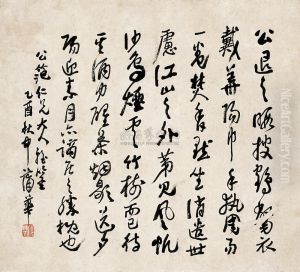 公退之暇披鶴氅衣
戴華陽巾手執周易
一卷焚香默坐消遣世
慮江山之外第見風帆
沙鳥煙雲竹樹而已待
其酒力醒茶烟歇送夕
陽迎素月亦謫居之勝概也
公範仁兄大人雅鑒
乙酉秋中蒲華